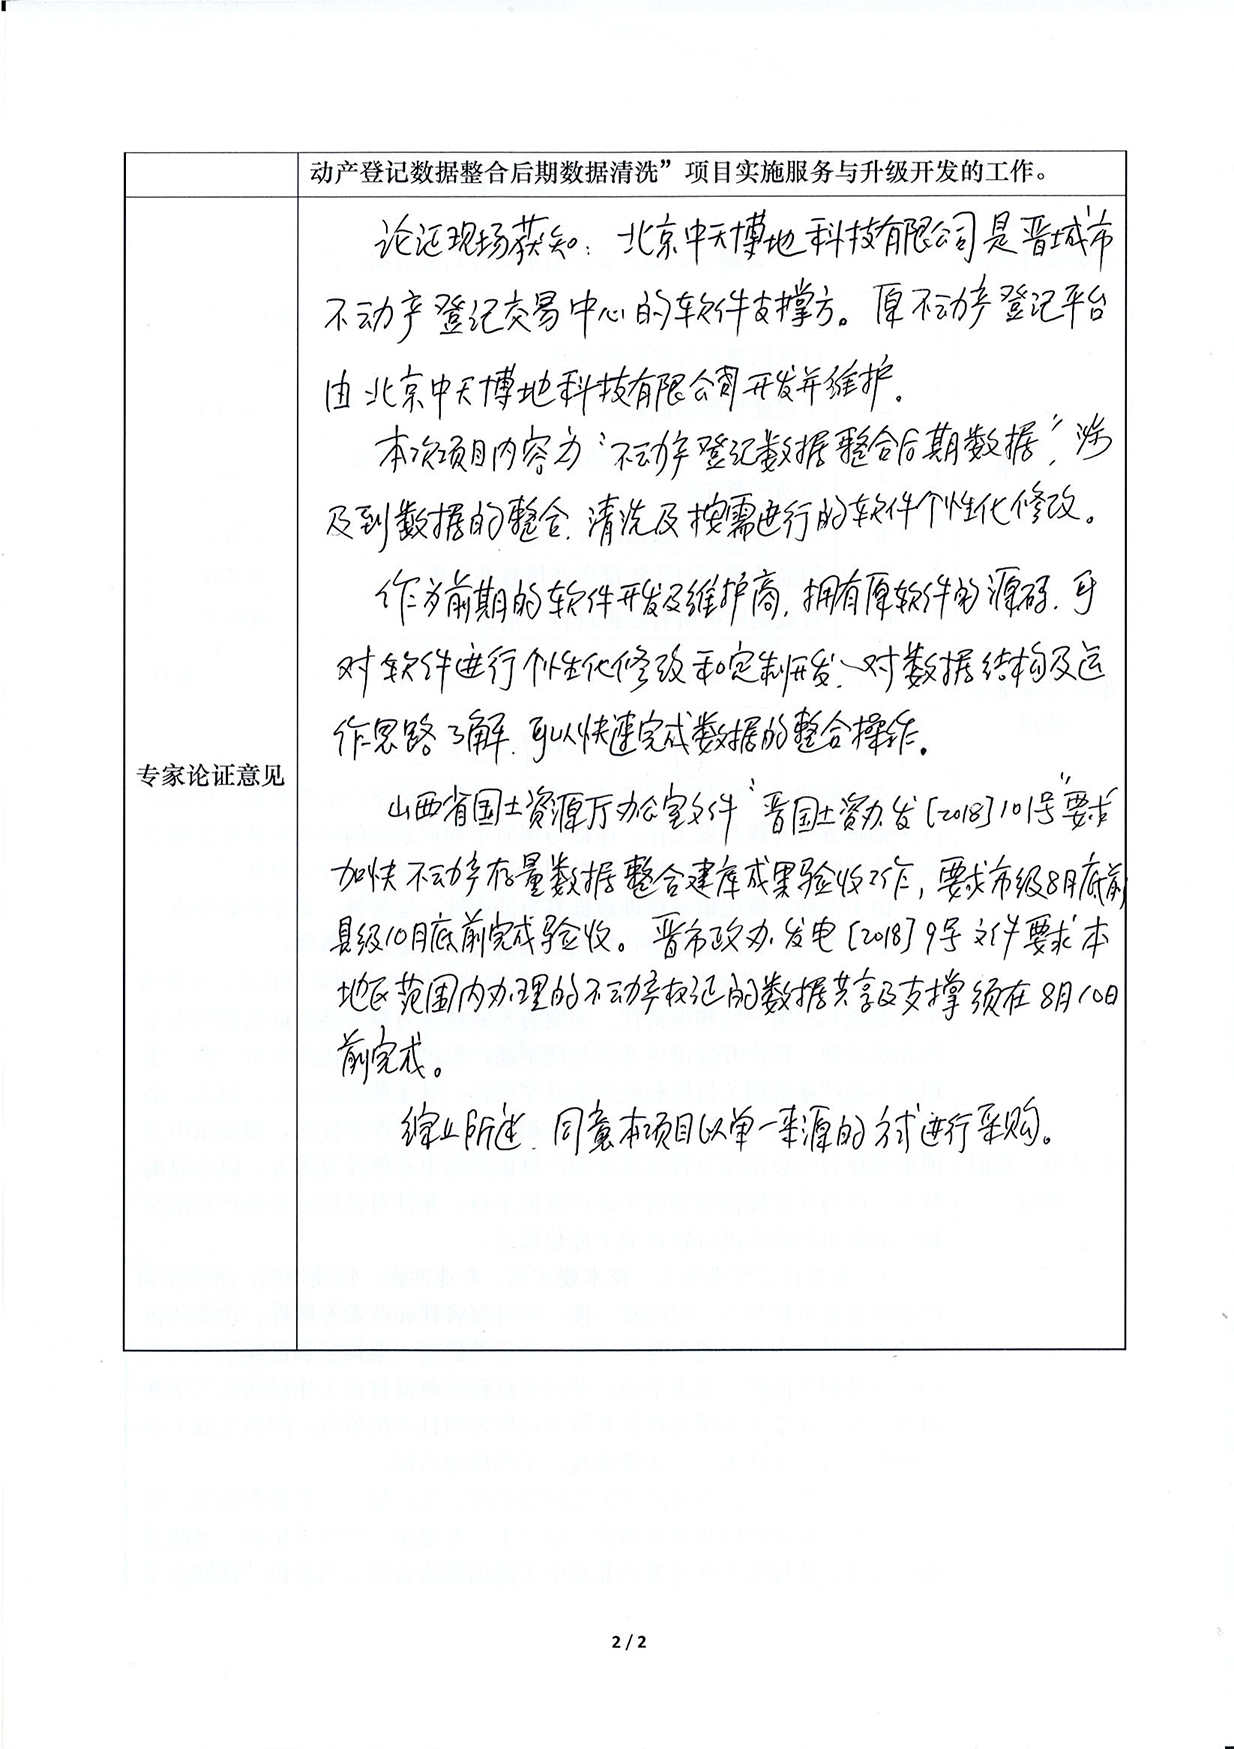 动产登记数据整合后期数据清洗”项目实施服务与升级开发的工作。
专家论证意见
论证现场获知：北京中天博地科技有限公司是晋城市
不动产登记交易中心的软件支撑方。原不动产登记平台
由北京中天博地科技有限公司开发并维护。
本次项目内容为“不动产登记数据整合后期数据”，涉
及到数据的整合、清洗及按需进行的软件个性化修改。
作为前期的软件开发及维护商，拥有原软件的源码，可
对软件进行个性化修改和定制开发、对数据结构及运
作思路了解，可以快速完成数据的整合操作。
山西省国土资源厅办公室文件“晋国土资办发[2018]101号”要求
加快不动产存量数据整合建库成果验收工作，要求市级8月底前
县级10月底前完成验收。晋市政办发电[2018]9号文件要求本
地区范围内办理的不动产权证的数据共享及支撑须在8月10日
前完成。
综上所述，同意本项目以单一来源的方式进行采购。
2 / 2